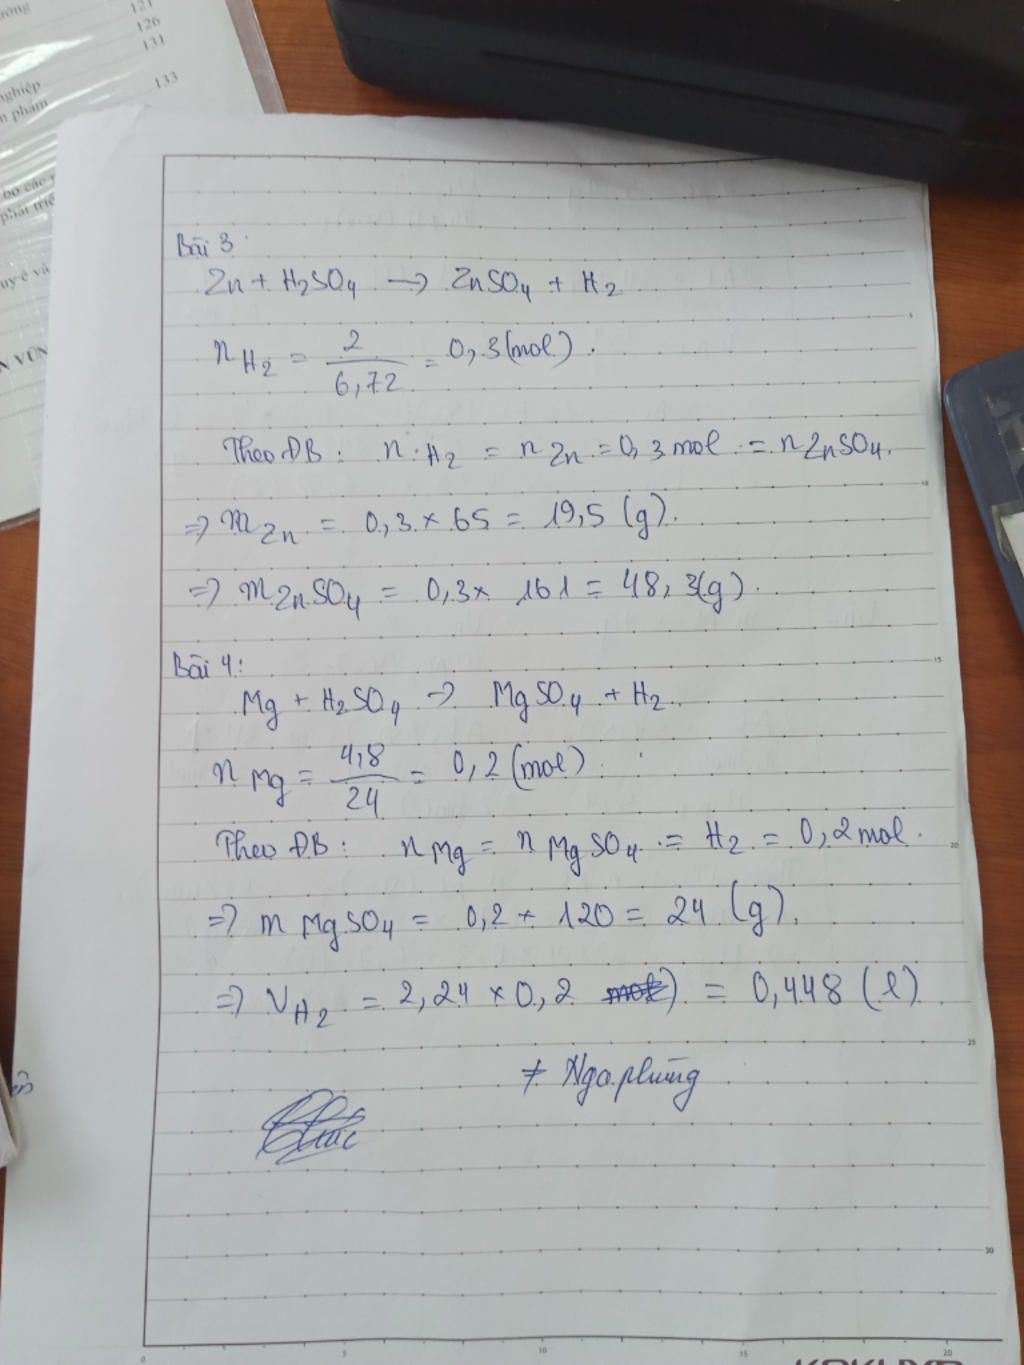 121
126
131
133
nghiệp
phẩm
bo các
phát triể
Bài 3:
Zn + H2SO4 → ZnSO4 + H2
nH2 = 2/6,72 = 0,3 (mol).
Theo ĐB: nH2 = nZn = 0,3 mol = nZnSO4.
=> mZn = 0,3 × 65 = 19,5 (g).
=> mZnSO4 = 0,3 × 161 = 48,3(g).
Bài 4:
Mg + H2SO4 → MgSO4 + H2.
nMg = 4,8/24 = 0,2 (mol)
Theo ĐB: nMg = nMgSO4 = H2 = 0,2 mol.
=> mMgSO4 = 0,2 + 120 = 24 (g).
=> VH2 = 2,24 × 0,2 ) = 0,448 (l)
5
10
15
20
25
30
0
5
10
15
20